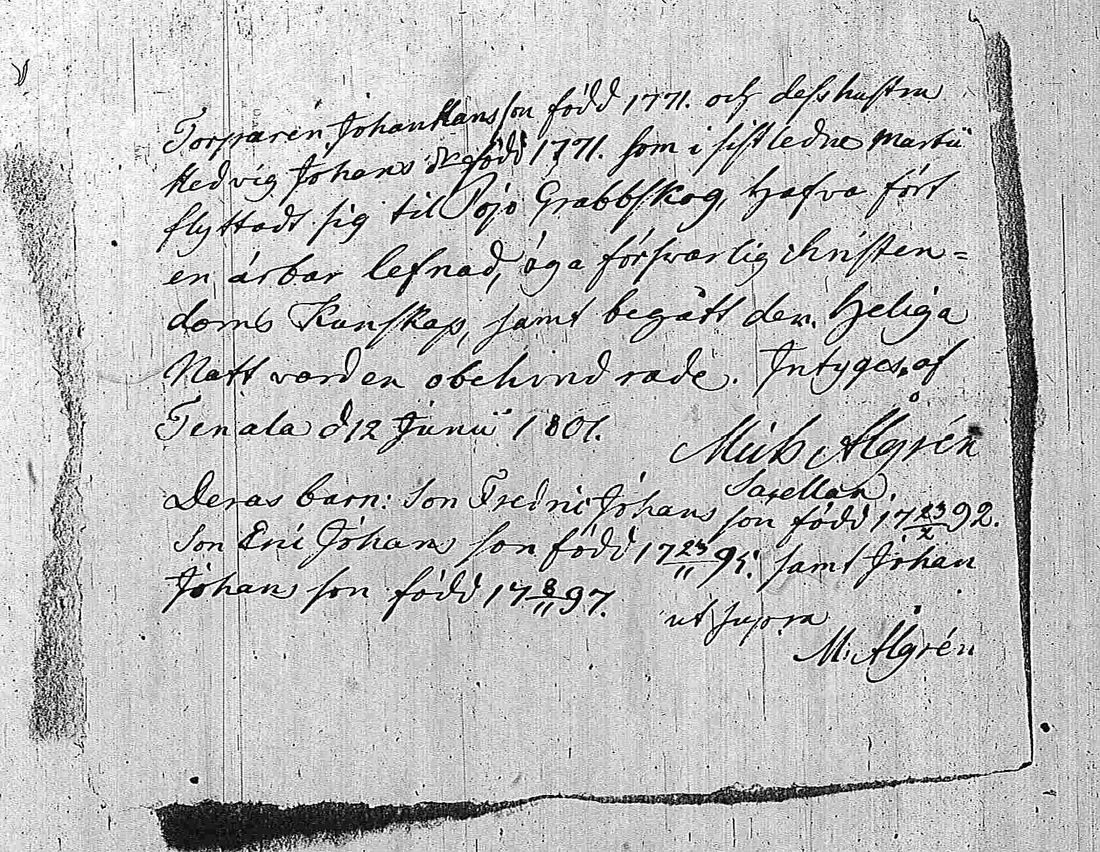 Torparen Johan Hansson född 1771. och dess hustru
Hedvig Johans född 1771. som i sistledne Martii
flyttadt sig til Pojo Grabbskog, hafva fört
en ärbar lefnad, äga försvarlig christen=
doms Kunskap, samt begått den Heliga
Nattvarden obehindrade. Intygas af
Tenala d 12 Junii 1801.
Mich Ålgrén
Sacellan.
Deras barn: Son Fredric Johans son född 17 23/2 92.
Son Eric Johans son född 17 23/11 95. samt Johan
Johans son född 17 8/11 97.
ut supra
M: Ålgrén